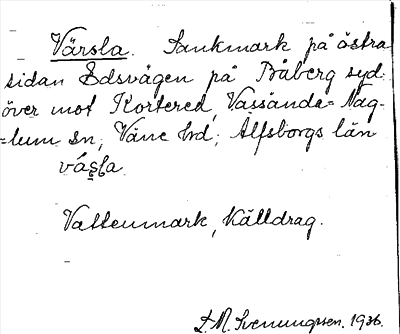 Värsla. Sankmark på östra
sidan Edsvägen på Båberg syd-
över mot Kortered, Vassända-Nag-
=lum sn, Väne hrd; Älfsborgs län
vásla.
Vattenmark, Källdrag.
L. M. Svenungsson. 1936.